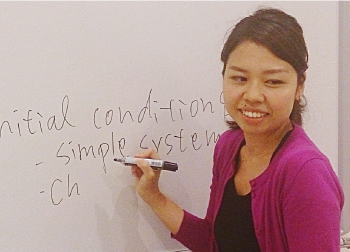 nitial conditions
- simple system
- Ch